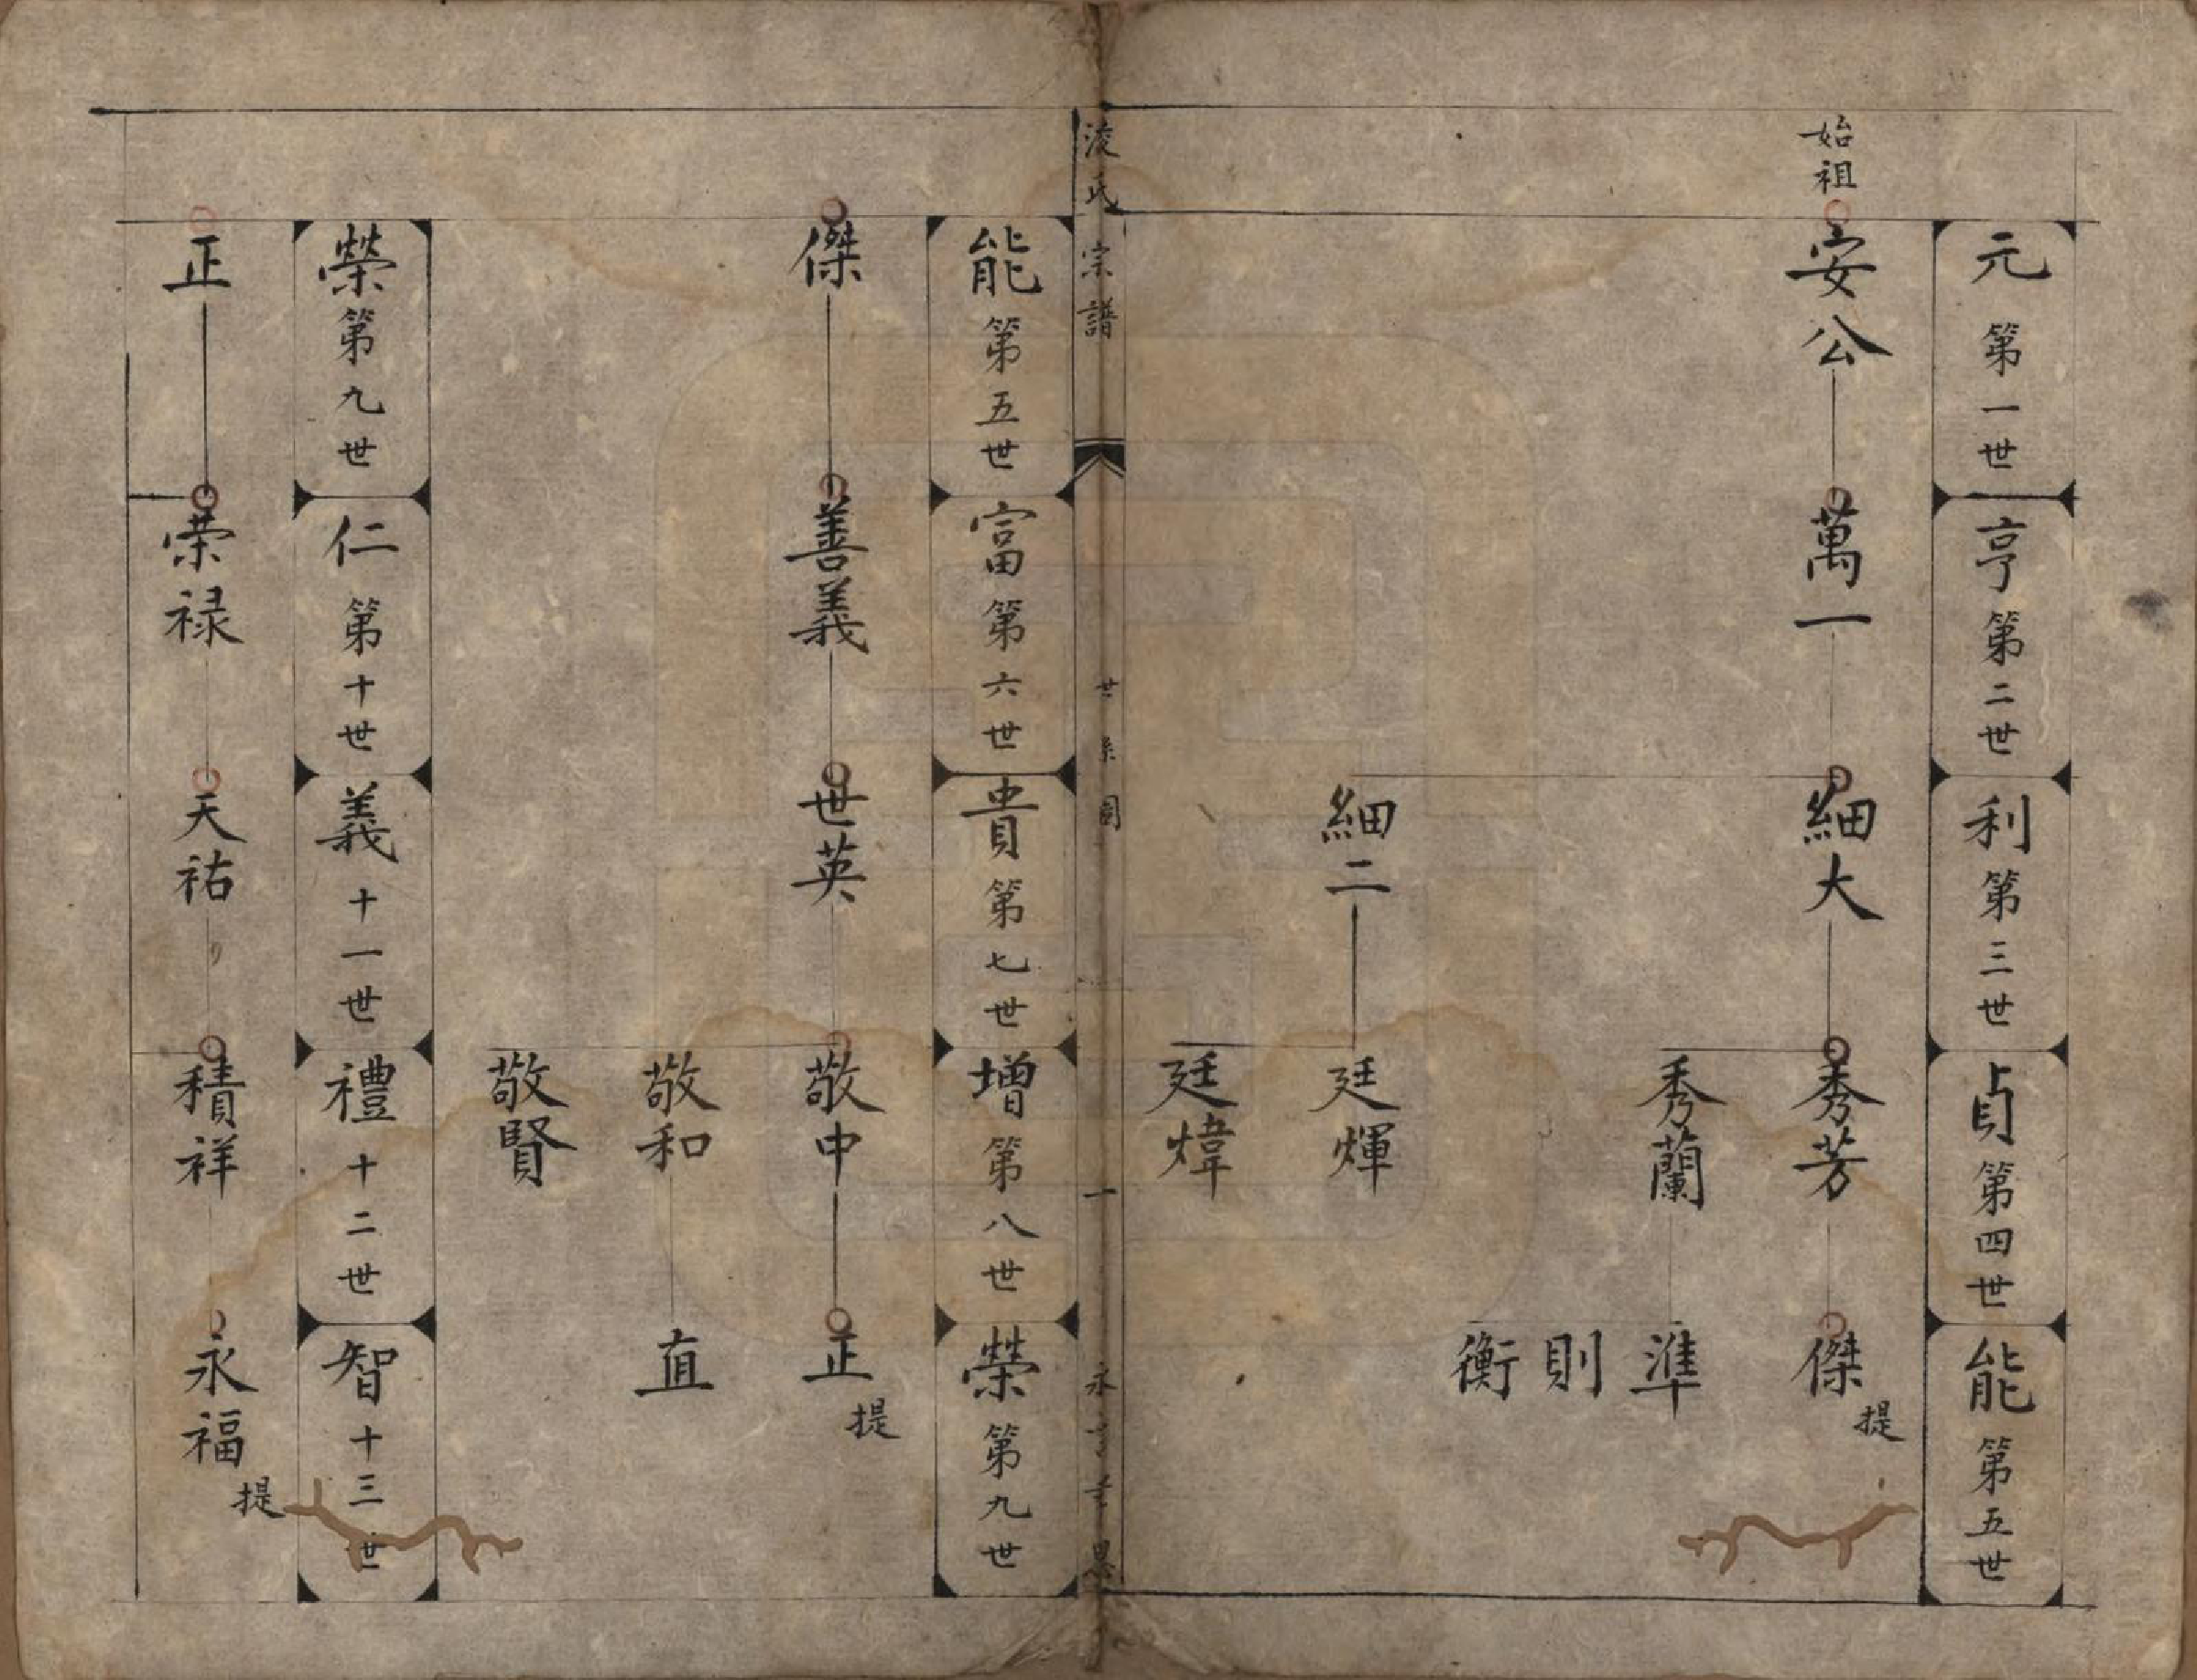 元 第一世
亨 第二世
利 第三世
貞 第四世
能 第五世
始祖
安公
萬一
細大
秀芳
傑 提
秀蘭
準
則
衡
細二
廷輝
廷煒
淩氏宗譜
世系圖
一
能 第五世
富 第六世
貴 第七世
增 第八世
榮 第九世
傑
善義
世英
敬中
正 提
敬和
直
敬賢
榮 第九世
仁 第十世
義 十一世
禮 十二世
智 十三世
正
荣禄
天祐
積祥
永福 提